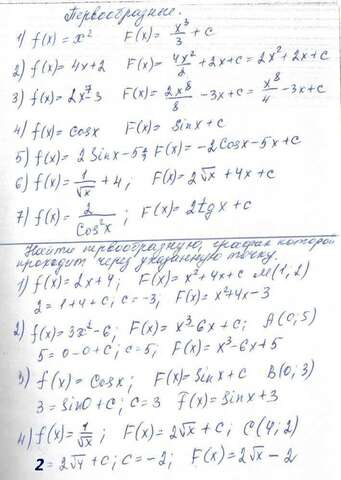 Первообразные.
1) f(x) = x² F(x) = x³/3 + c
2) f(x) = 4x+2 F(x) = 4x²/2 + 2x + c = 2x² + 2x + c
3) f(x) = 2x⁷-3 F(x) = 2x⁸/8 - 3x + c = x⁸/4 - 3x + c
4) f(x) = cosx F(x) = Sinx + c
5) f(x) = 2Sinx - 5; F(x) = -2Cosx - 5x + c
6) f(x) = 1/√x + 4; F(x) = 2√x + 4x + c
7) f(x) = 2/Cos²x; F(x) = 2tgx + c
Найти первообразную, график которой
проходит через указанную точку.
1) f(x) = 2x+4; F(x) = x² + 4x + c M(1, 2)
2 = 1+4+c; c = -3; F(x) = x²+4x-3
2) f(x) = 3x²-6; F(x) = x³-6x+c; A(0; 5)
5 = 0-0+c; c = 5; F(x) = x³-6x+5
3) f(x) = Cosx; F(x) = Sinx + c B(0; 3)
3 = Sin0 + c; c = 3 F(x) = Sinx + 3
4) f(x) = 1/√x; F(x) = 2√x + c; C(4; 2)
2 = 2√4 + c; c = -2; F(x) = 2√x - 2